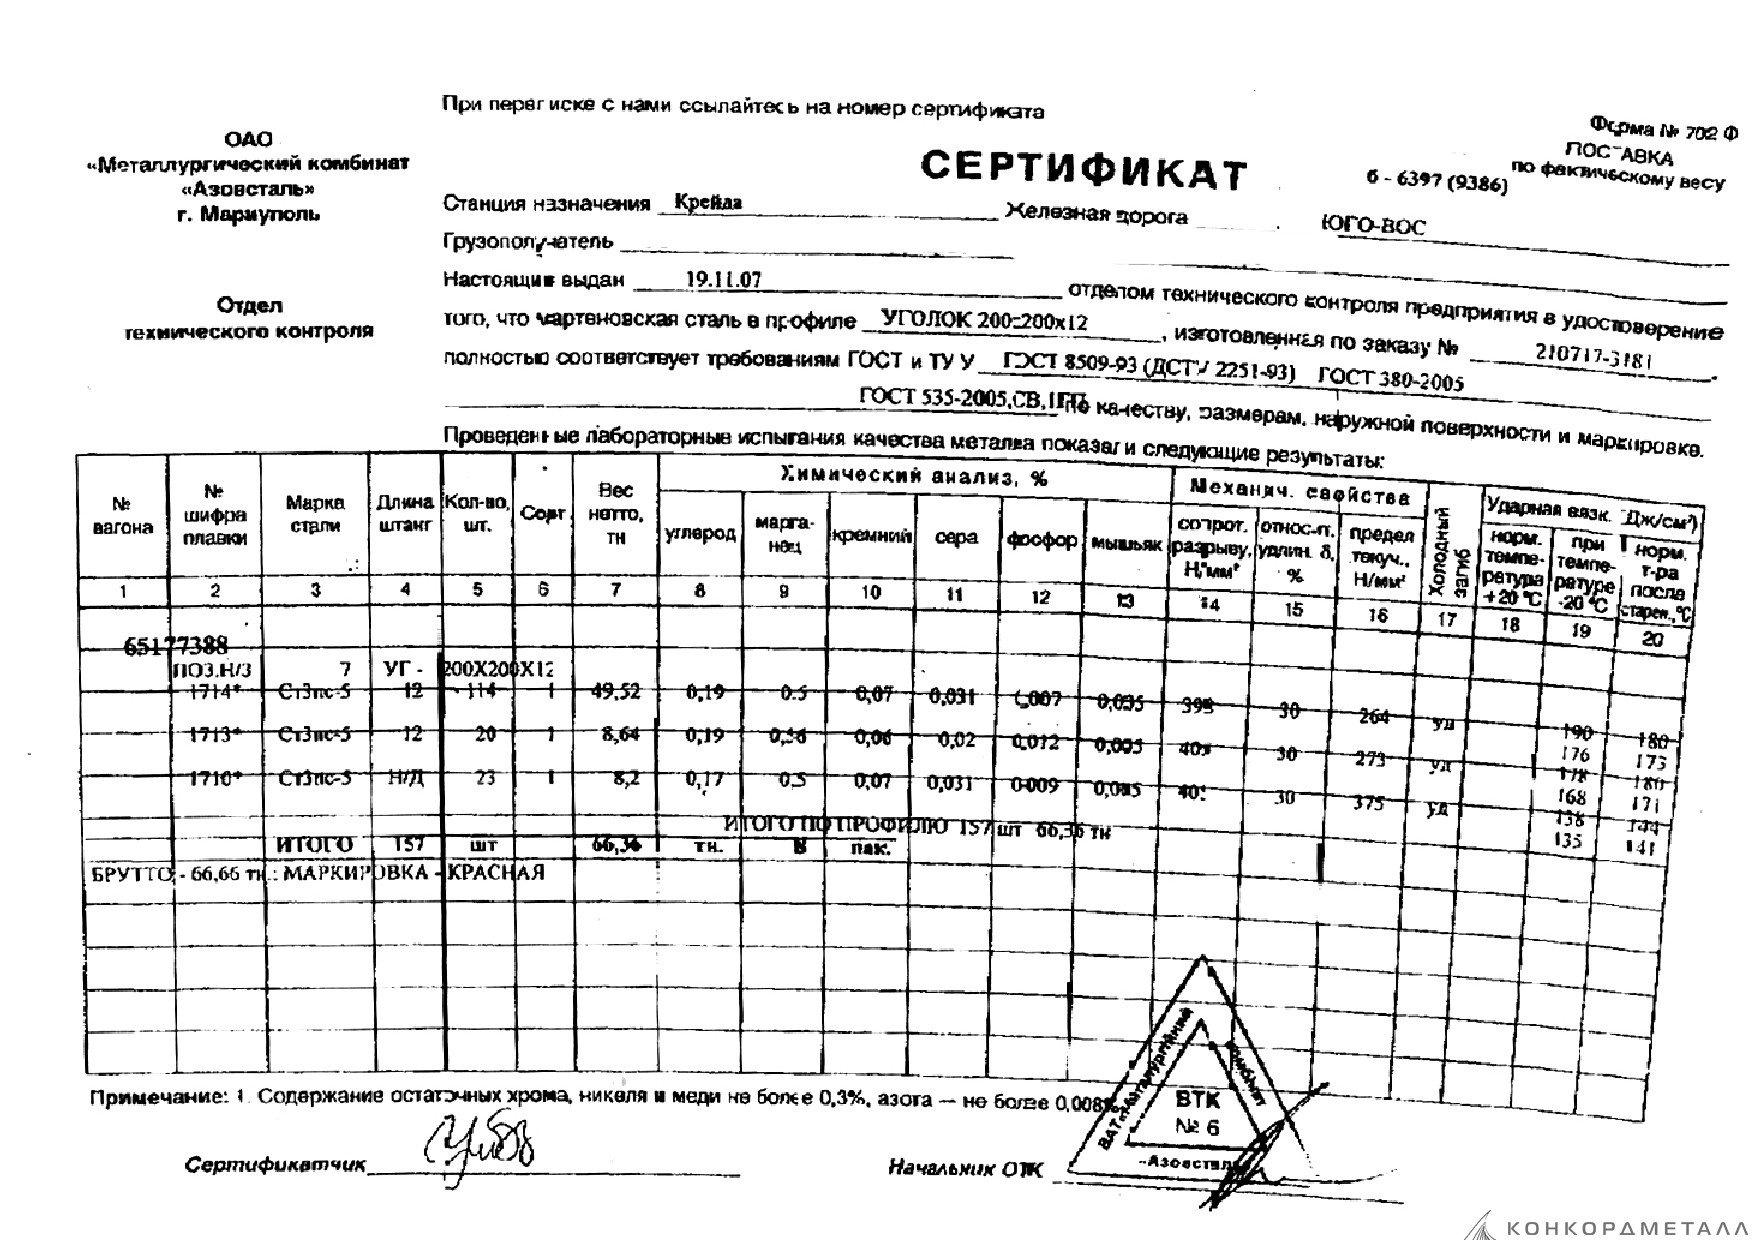 При переписке с нами ссылайтесь на номер сертификата
Форма № 702 Ф
ОАО
«Металлургический комбинат
«Азовсталь»
г. Мариуполь
СЕРТИФИКАТ
6 - 6397 (9386)
ПОСТАВКА
по фактическому весу
Станция назначения Крейда Железная дорога ЮГО-ВОС
Грузополучатель
Отдел
технического контроля
Настоящий выдан 19.11.07 отделом технического контроля предприятия в удостоверение
того, что мартеновская сталь в профиле УГОЛОК 200х200х12, изготовленная по заказу № 210717-3181
полностью соответствует требованиям ГОСТ и ТУ У ГОСТ 8509-93 (ДСТУ 2251-93) ГОСТ 380-2005
ГОСТ 535-2005,СВ, по качеству, размерам, наружной поверхности и маркировке.
Проведенные лабораторные испытания качества металла показали следующие результаты:
№ вагона
№ шифра плавки
Марка стали
Длина штанг
Кол-во, шт.
Сорт
Вес нетто, тн
Химический анализ, %
углерод
марганец
кремний
сера
фосфор
мышьяк
Механич. свойства
сопрот. разрыву, Н/мм²
относ-п. удлин. δ, %
предел текуч., Н/мм²
Холодный загиб
Ударная вязк. (Дж/см²)
норм. темпе-ратура +20 °С
при темпе-ратуре -20 °С
норм. т-ра после старен., °С
1 2 3 4 5 6 7 8 9 10 11 12 13 14 15 16 17 18 19 20
65177388
ПОЗ.Н/З 7 УГ - 200Х200Х12
1714* Ст3пс-5 12 114 1 49,52 0,19 0.5 0,07 0,031 0,007 0,035 395 30 264 уд 190 180
176 173
1713* Ст3пс-5 12 20 1 8,64 0,19 0,56 0,06 0,02 0,012 0,005 30 273 уд 178 180
168 171
1710* Ст3пс-5 Н/Д 23 1 8,2 0,17 0.5 0,07 0,031 0,009 30 375 уд 138 144
135 141
ИТОГО ПО ПРОФИЛЮ 157 шт 66,36 тн
ИТОГО 157 шт 66,36 тн. 8 пак.
БРУТТО - 66,66 тн.: МАРКИРОВКА - КРАСНАЯ
Примечание: 1. Содержание остаточных хрома, никеля и меди не более 0,3%, азота — не более 0,008%
Сертификатчик
Начальник ОТК
ВАТ «Металургійний комбінат
ВТК
№ 6
«Азовсталь»
КОНКОРДМЕТАЛЛ